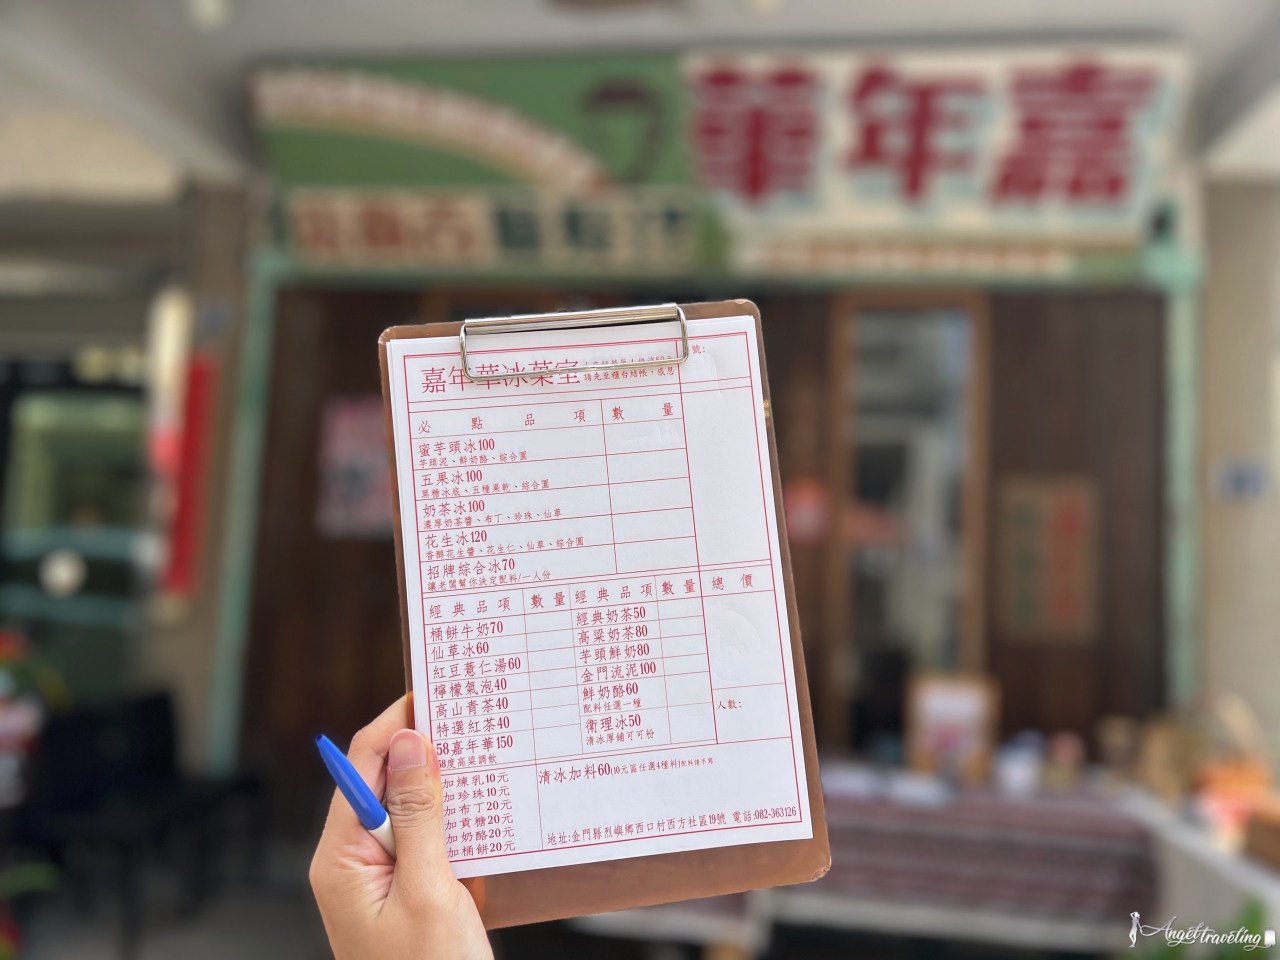 嘉年華
嘉年華冰菓室
請先至櫃台結帳，感恩
號:
必點品項 數量
蜜芋頭冰100
芋頭泥、鮮奶酪、綜合圓
五果冰100
黑糖冰底、五種果乾、綜合圓
奶茶冰100
濃厚奶茶醬、布丁、珍珠、仙草
花生冰120
香醇花生醬、花生仁、仙草、綜合圓
招牌綜合冰70
讓老闆幫你決定配料/一人份
經典品項 數量 經典品項 數量 總價
桶餅牛奶70
仙草冰60
紅豆薏仁湯60
檸檬氣泡40
高山青茶40
特選紅茶40
58嘉年華150
58度高粱調飲
經典奶茶50
高粱奶茶80
芋頭鮮奶80
金門流泥100
鮮奶酪60
配料任選一種
衛理冰50
清冰厚鋪可可粉
人數:
加煉乳10元
加珍珠10元
加布丁20元
加貢糖20元
加奶酪20元
加桶餅20元
清冰加料60(10元區任選4種料)配料請手寫
地址:金門縣烈嶼鄉西口村西方社區19號 電話:082-363126
Angel traveling